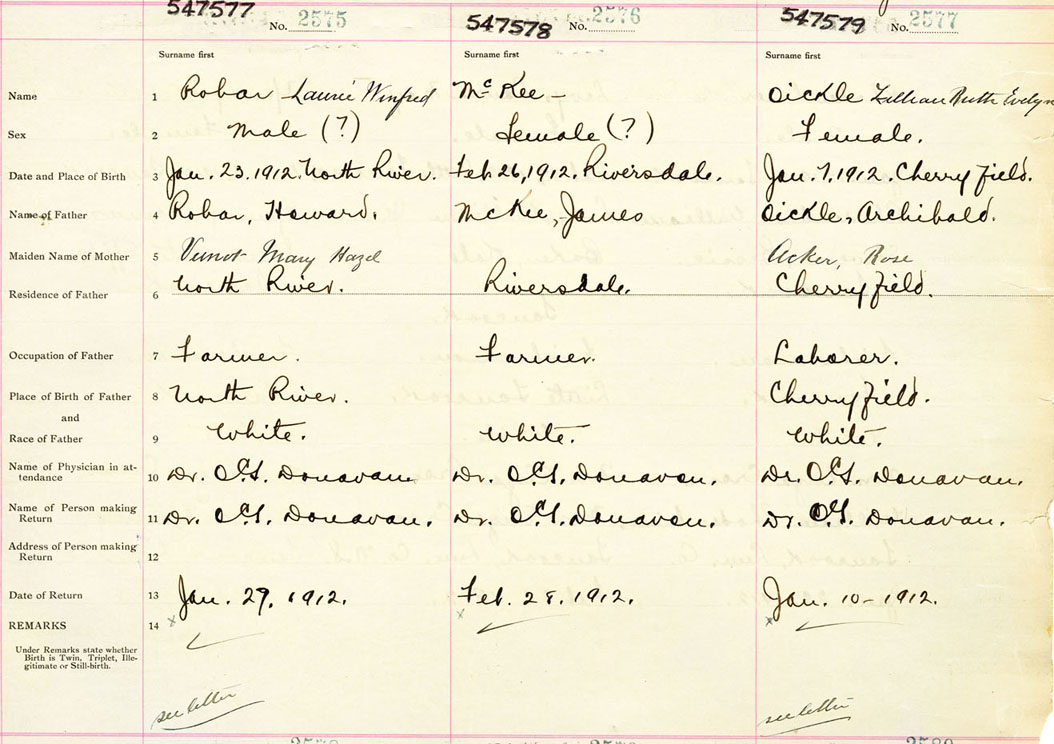 547577 No. 2575 547578 No. 2576 547579 No. 2577
Surname first Surname first Surname first
Name 1 Robar Laurie Winfred McKee - Oickle Lillian Ruth Evelyn
Sex 2 Male (?) Female (?) Female.
Date and Place of Birth 3 Jan. 23. 1912. North River. Feb 26, 1912. Riversdale. Jan. 7, 1912. Cherryfield.
Name of Father 4 Robar, Howard. McKee, James Oickle, Archibald.
Maiden Name of Mother 5 Veinot Mary Hazel Acker, Rose
Residence of Father 6 North River. Riversdale. Cherryfield.
Occupation of Father 7 Farmer. Farmer. Laborer.
Place of Birth of Father 8 North River. Cherryfield.
and
Race of Father 9 White. White. White.
Name of Physician in at-
tendance 10 Dr. Donavan. Dr. Donavan. Dr. Donavan.
Name of Person making
Return 11 Dr. Donavan. Dr. Donavan. Dr. Donavan.
Address of Person making
Return 12
Date of Return 13 Jan. 29, 1912. Feb. 28. 1912. Jan. 10 - 1912.
REMARKS 14 x x x
Under Remarks state whether
Birth is Twin, Triplet, Ille-
gitimate or Still-birth.
see letter see letter
2580